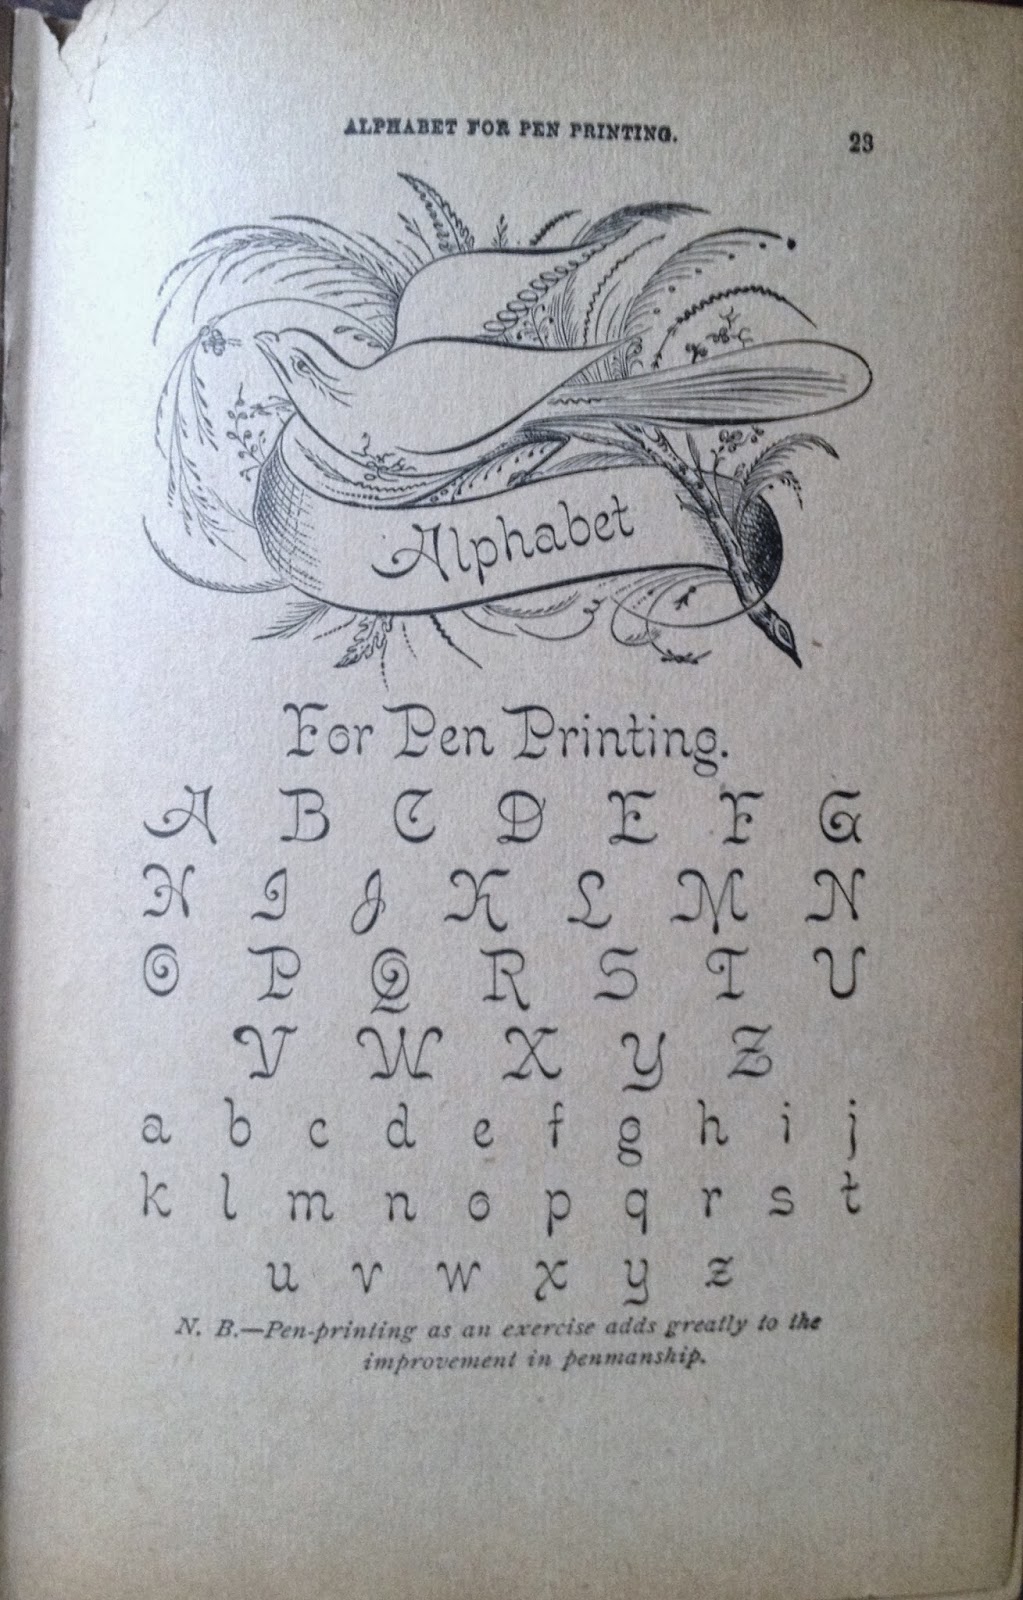 ALPHABET FOR PEN PRINTING.
23
Alphabet
For Pen Printing.
A B C D E F G
H I J K L M N
O P Q R S T U
V W X Y Z
a b c d e f g h i j
k l m n o p q r s t
u v w x y z
N. B.—Pen-printing as an exercise adds greatly to the
improvement in penmanship.